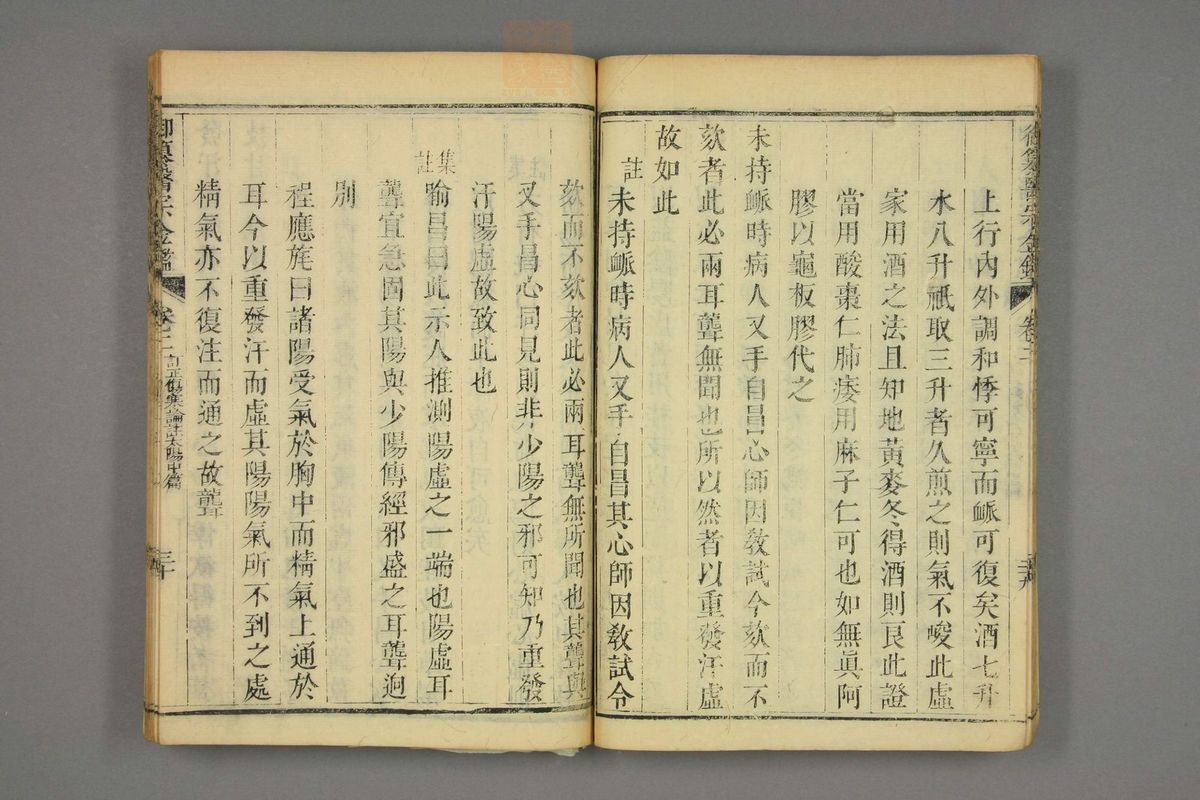 御纂醫宗金鑑 卷二
上行內外調和悸可寧而脈可復矣酒七升
水八升祇取三升者久煎之則氣不峻此虛
家用酒之法且知地黃麥冬得酒則良此證
當用酸棗仁肺痿用麻子仁可也如無眞阿
膠以龜板膠代之
未持脈時病人叉手自冒心師因敎試令欬而不
欬者此必兩耳聾無聞也所以然者以重發汗虛
故如此
註 未持脈時病人叉手自冒其心師因敎試令
欬而不欬者此必兩耳聾無所聞也其聾與
叉手冒心同見則非少陽之邪可知乃重發
汗陽虛故致此也
集註 喻昌曰此示人推測陽虛之一端也陽虛耳
聾宜急固其陽與少陽傳經邪盛之耳聾逈
別
程應旄曰諸陽受氣於胸中而精氣上通於
耳今以重發汗而虛其陽陽氣所不到之處
精氣亦不復注而通之故聾
御纂醫宗金鑑 卷二 訂正傷寒論註太陽中篇 三十